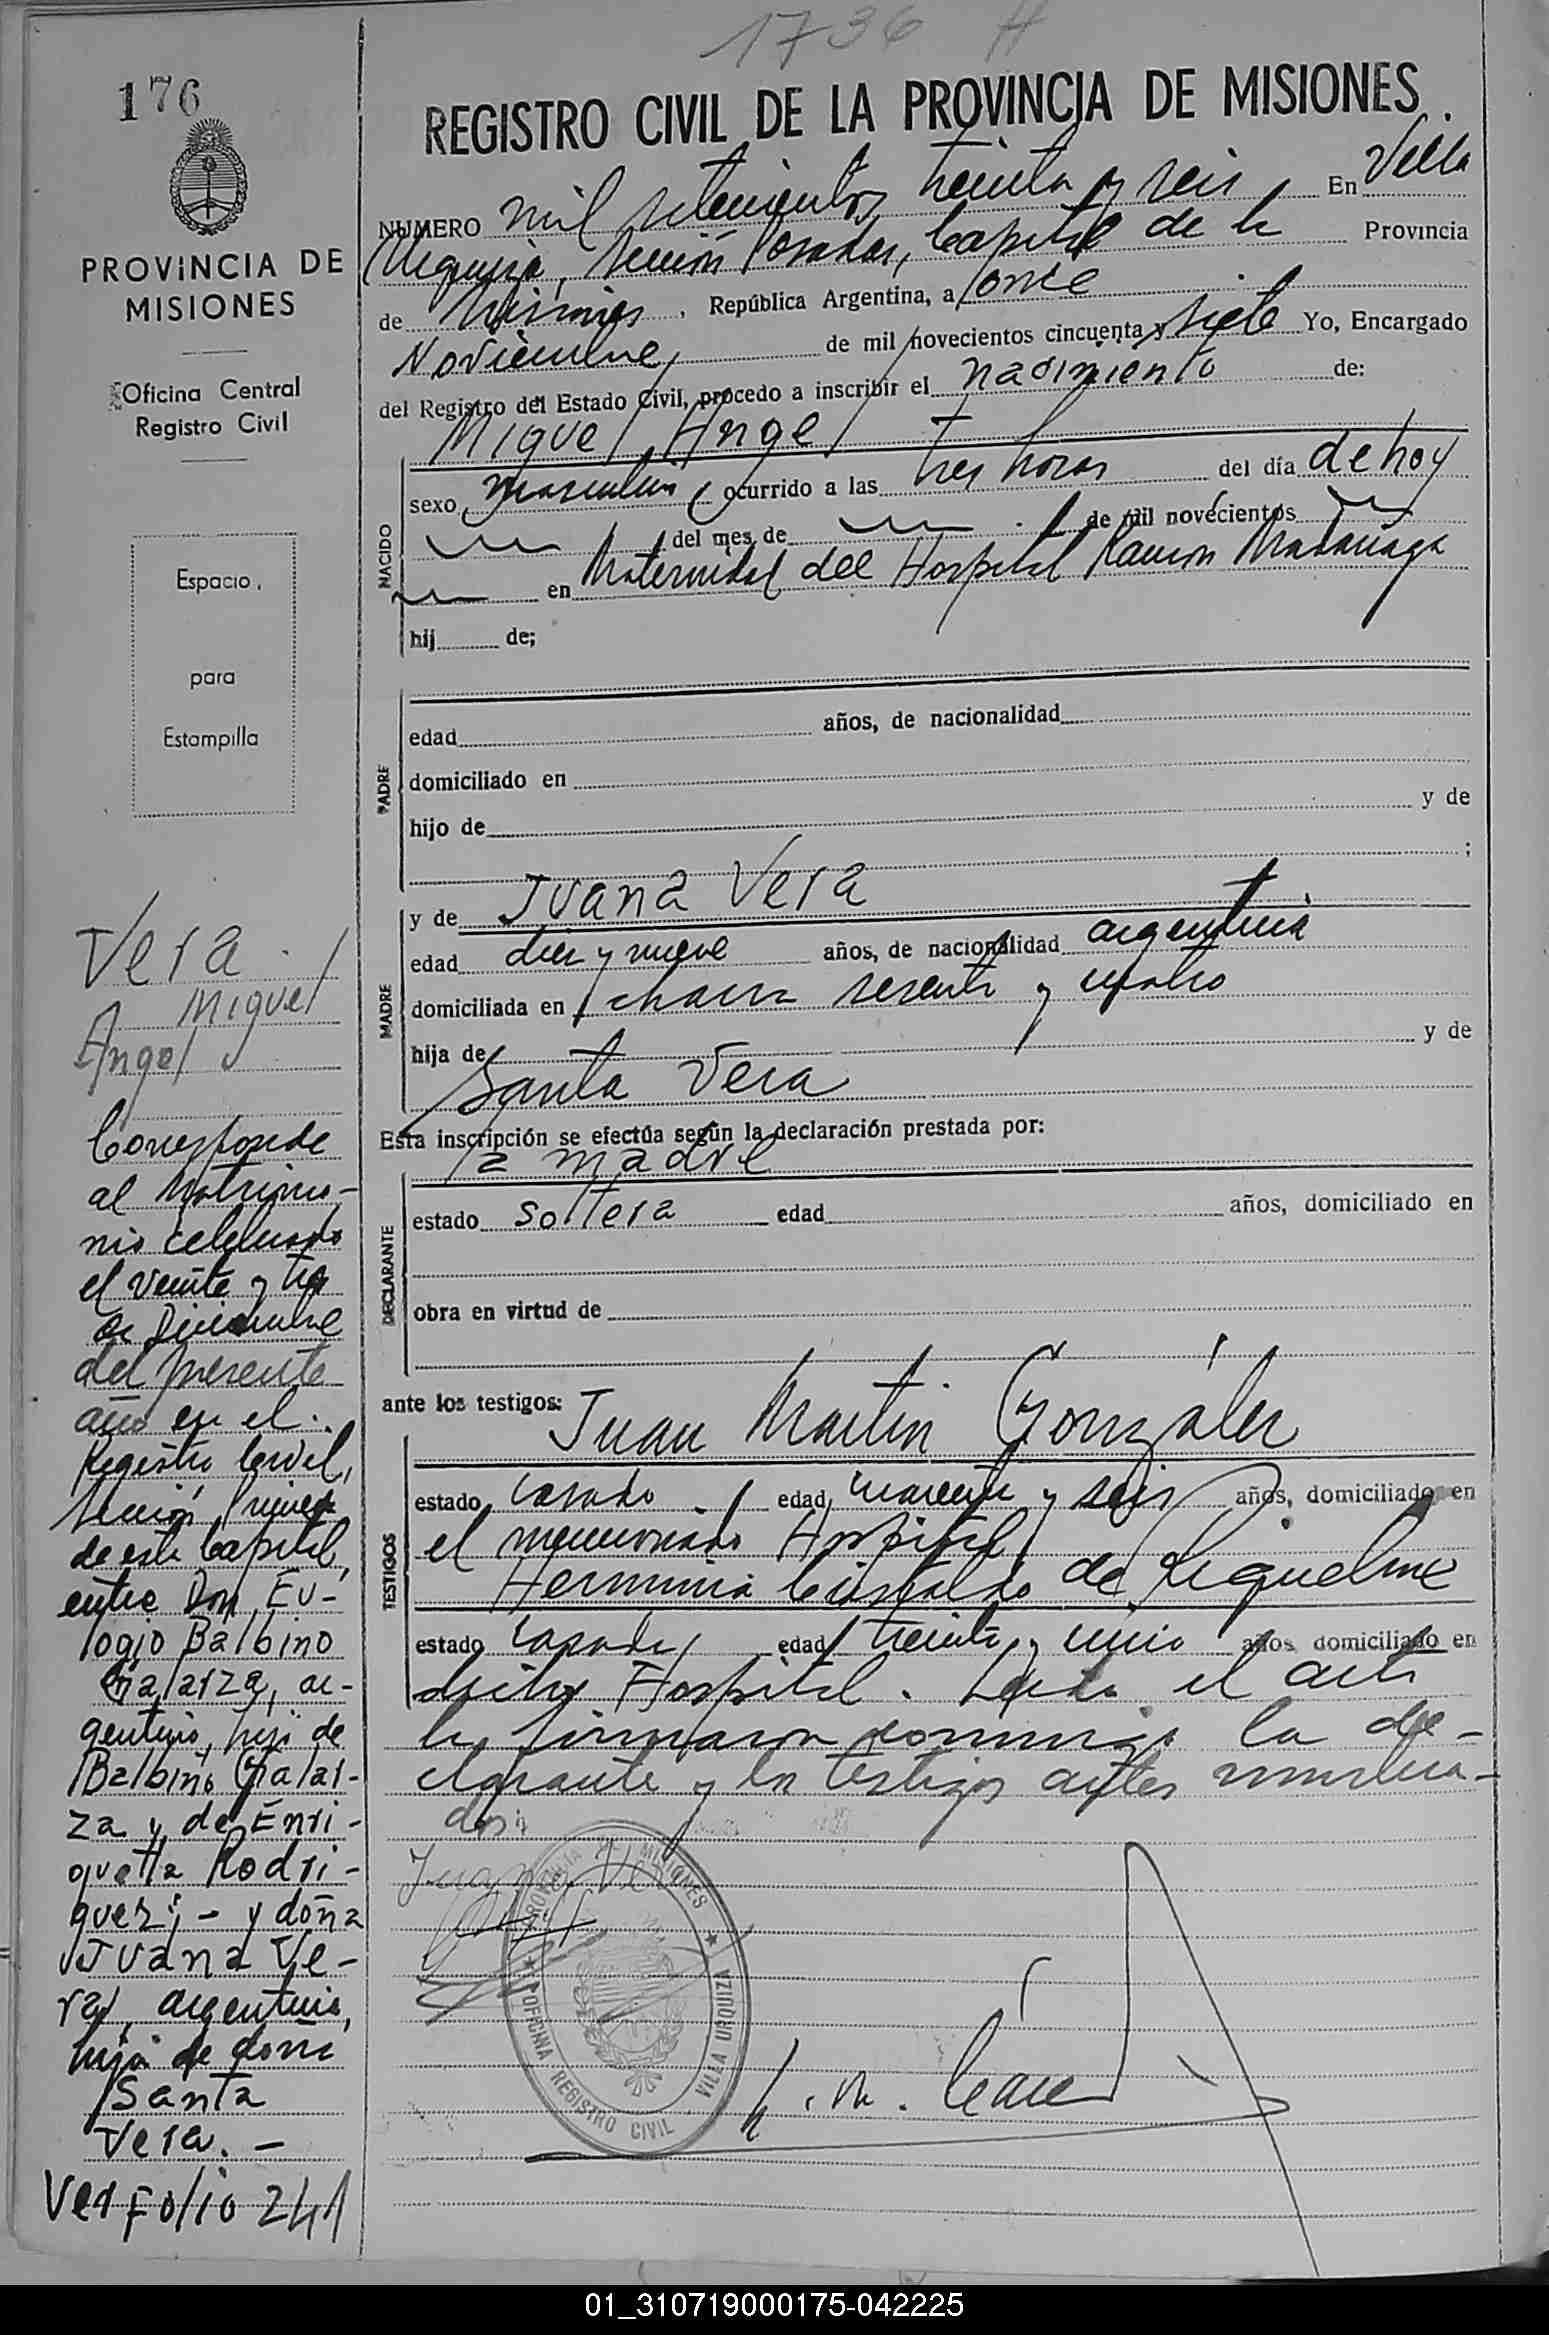 1736 H
176
REGISTRO CIVIL DE LA PROVINCIA DE MISIONES.
PROVINCIA DE
MISIONES
Oficina Central
Registro Civil
Espacio
para
Estampilla
Vera
Miguel
Angel
Corresponde
al Matrimo-
nio celebrado
el veinte y tres
de Diciembre
del presente
año en el
Registro Civil,
Sección Primera
de esta Capital,
entre Don Eu-
logio Balbino
Galarza, ar-
gentino, hijo de
Balbino Galar-
za y de Enri-
quetta Rodri-
guez; - y doña
Juana Ve-
ra, argentina,
hija de doña
Santa
Vera. -
Ver Folio 241
NUMERO mil setecientos treinta y seis En Villa
Urquiza, Sección Posadas, Capital de la Provincia
de Misiones, República Argentina, a once
Noviembre, de mil novecientos cincuenta y siete Yo, Encargado
del Registro del Estado Civil, procedo a inscribir el nacimiento de:
Miguel Angel
NACIDO
sexo masculino ocurrido a las tres horas del día de hoy
del mes de de mil novecientos
en Maternidad del Hospital Ramón Madariaga
hij de;
PADRE
edad años, de nacionalidad
domiciliado en
hijo de y de
;
MADRE
y de Juana Vera
edad diez y nueve años, de nacionalidad argentina
domiciliada en chacra sesenta y cuatro
hija de y de
Santa Vera
Esta inscripción se efectúa según la declaración prestada por:
la madre
DECLARANTE
estado soltera edad años, domiciliado en
obra en virtud de
ante los testigos: Juan Martin González
TESTIGOS
estado casado edad cuarenta y seis años, domiciliado en
el mencionado Hospital
Herminia Cristaldo de Riquelme
estado casada, edad treinta y cinco años domiciliado en
dicho Hospital. Leida el acta
la firmaron conmigo la de-
clarante y los testigos antes nombra-
dos:
Juana Vera
PROVINCIA DE MISIONES
OFICINA REGISTRO CIVIL VILLA URQUIZA
01_310719000175-042225